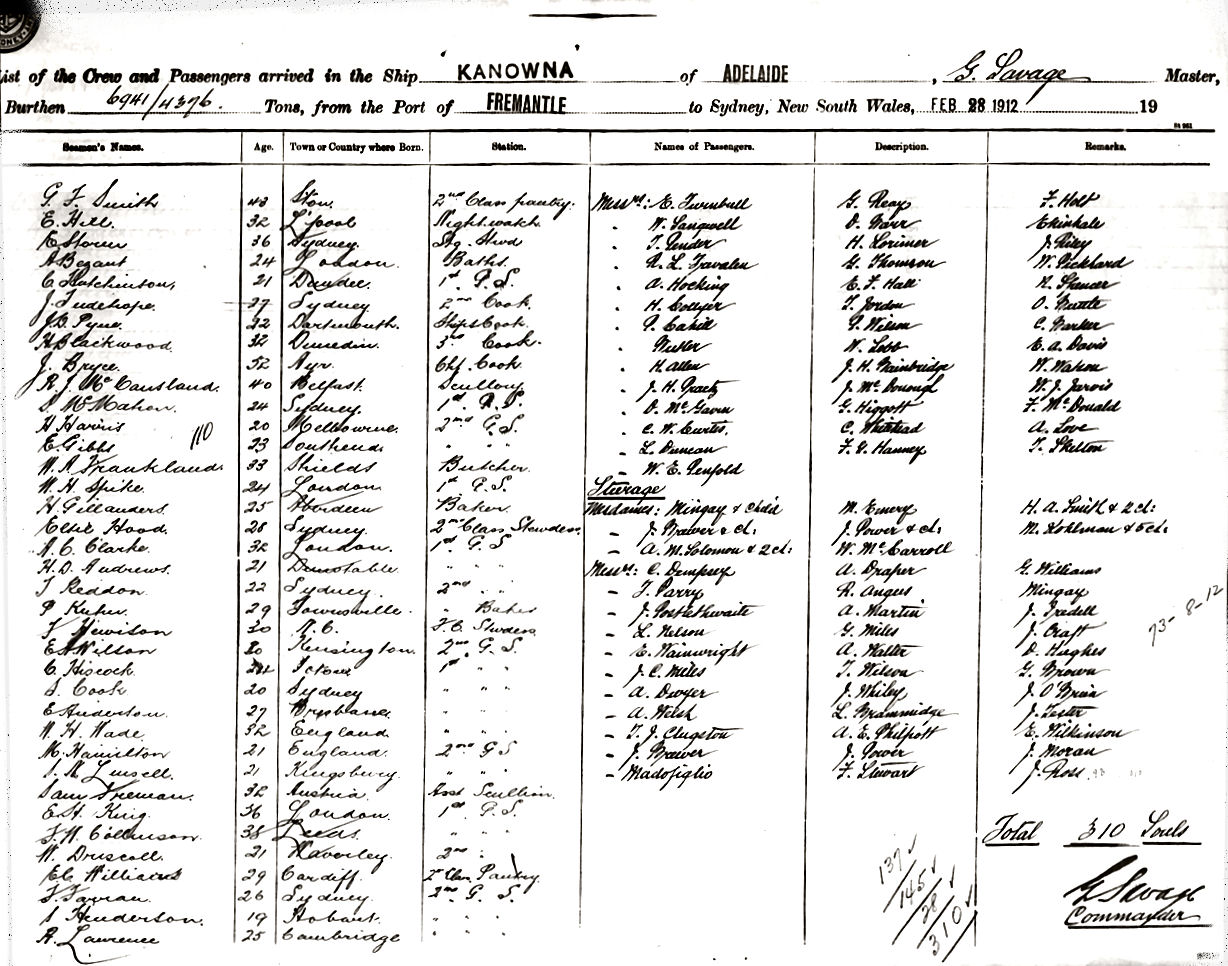 List of the Crew and Passengers arrived in the Ship KANOWNA of ADELAIDE, G. Savage Master,
Burthen 6941/4376. Tons, from the Port of FREMANTLE to Sydney, New South Wales, FEB 28 1912 19
Seamen's Names. Age. Town or Country where Born. Station. Names of Passengers. Description. Remarks.
G. F. Smith 43 Stow. 2nd Class pantry. Messrs: E. Turnbull G. Reay F. Holt
E. Hill. 32 L'pool Nightwatch . W. Sangwell O. Warr
E Storm 36 Sydney. Stwd . T. Pender H. Lorimer J. Riley
A Bezant 24 London. Baths. . R. L. Travalen G. Thomson W. Pickhard
C Hutchinson, 21 Dundee. 1st G.S. . A. Hocking E. F. Hall K. Spencer
J. Tudehope. 37 Sydney 2nd Cook. . H. Collyer T. Jordon O. Nuttle
J.D. Pyne. 32 Dartmouth. Ships Cook . P. Cahill P. Wilson C. Barker
H Blackwood. 32 Dunedin. 3rd Cook. . W. Loss E. A. Davis
J. Bryce. 52 Ayr. Chf. Cook. . H. Allen J. H. Bainbridge W. Watson
R. J. McCausland. 40 Belfast. Scullery . J. H. J. McDonough W. J. Jarvis
S. McMahon. 24 Sydney. 1st . O. McGavin G. Higgott F. McDonald
H Harris 20 Melbourne. 2nd G.S. . C. W. Curtis. C. A. Love
E. Gibbs 110 33 Southend. " " " . L. Duncan F. G. Hanney T. Skelton
W. A Frankland. 33 Shields Butcher. . W. E. Penfold
W. H. Spike. 24 London. 1st G.S. Steerage
H. Gillanders. 25 Aberdeen Baker. Mesdames: Mingay & Child M. Emery H. A. Smith & 2ch:
Elsie Hood 28 Sydney. 2nd Class Stewdess. – J. Brewer & ch: J. Power & ch: M. Kohlman & 5ch:
A. C. Clarke. 32 London. 1st G.S – A. M. Solomon & 2ch: W. McCarroll
H. D. Andrews. 21 Dunstable. " " " Messrs: C. Dempsey A. Draper G. Williams
T Reddon 22 Sydney. 2nd " " – T. Parry R. Angus Mingay
P. Kuhn. 29 Townsville. " Baker – J. Postlethwaite A. Martin J. Tredell
F. Hewison 30 N.C. F.C. Stwdess. – L. Nelson G. Miles J. Craft 73-8-12
E. A Wilson 20 Kensington. 2nd G.S. – E. Wainwright A. Walter D. Hughes
C. Hiscock. 24 1st " " – J. C. Miles T. Wilson G. Brown
S. Cook. 20 Sydney " " " – A. Dwyer J. Whiley J. O'Brien
E Anderson. 27 Brisbane. " " " – A. Welsh L. Brammidge J. Lester
W. H. Wade. 32 England. " " " – T. J. Clugston A. E. Philpott E. Wilkinson
M. Hamilton 21 England. 2nd G S – J. Brewer J. Power J. Moran
21 Kingsbury. " " " – Madofiglio F. Stewart J. Ross.
Sam Freman. 32 Austria. Asst Scullion.
E. H. King. 36 London. 1st G.S.
F. W. Collinson. 38 Leeds. " " " Total 310 Souls
W. Driscoll. 21 Waverley. 2nd " 137 ✓
E C Williams 29 Cardiff. 2nd Class Pantry. 145 ✓ G Savage
F. Farran. 26 Sydney. 2nd G.S. 28 ✓ Commander
S Henderson. 19 Hobart. " " " 310 ✓
A. Lawrence 25 Cambridge " " "